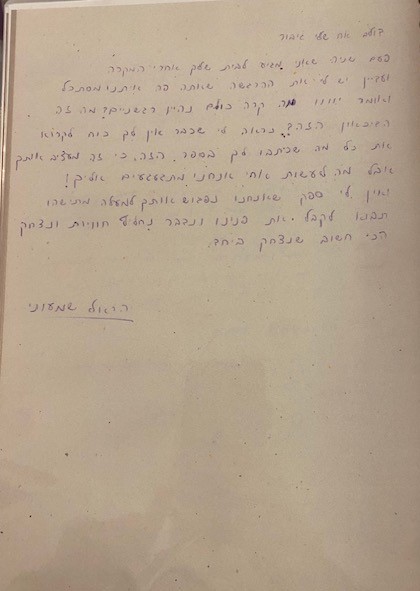 בולם אח שלי גיבור
פעם שניה שאני מגיע לבית שלך אחרי המקרה
ועדיין יש לי את ההרגשה שאתה פה איתנו מסתכל
ואומר יוווו מה קרה כולם נהיו רגשניים? מה זה
הדיכאון הזה? נראה לי שכבר אין לך כוח לקרוא
את כל מה שכיתבו לך בספר הזה, כי זה מעציב אותך
אבל מה לעשות אחי אנחנו מתגעגעים אליך!
ואין לי ספק שאנחנו נפגוש אותך למעלה מתישהו
תבוא לקבל את פנינו ונדבר נחליף חוויות ונצחק
הכי חשוב שנצחק ביחד.
הראל שמעוני